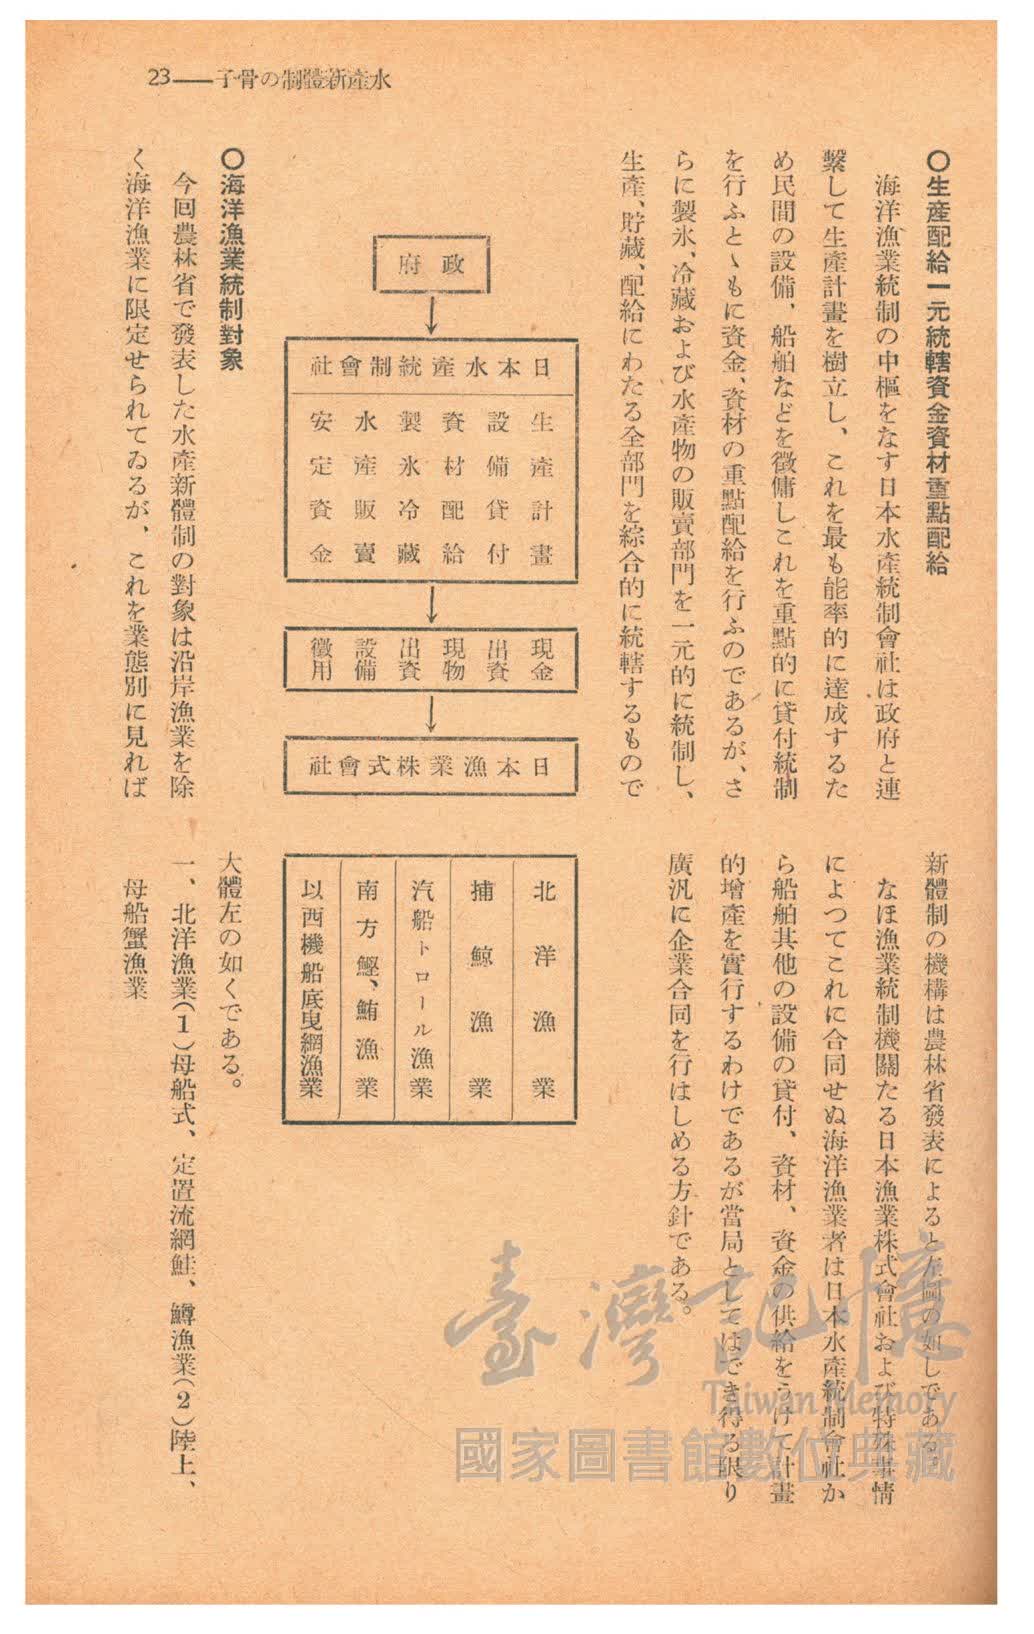 水產新體制の骨子——23
○生產配給一元統轄資金資材重點配給
海洋漁業統制の中樞をなす日本水產統制會社は政府と連
繫して生產計畫を樹立し、これを最も能率的に達成するた
め民間の設備、船舶などを徵傭しこれを重點的に貸付統制
を行ふとゝもに資金、資材の重點配給を行ふのであるが、さ
らに製氷、冷藏および水產物の販賣部門を一元的に統制し、
生產、貯藏、配給にわたる全部門を綜合的に統轄するもので
新體制の機構は農林省發表によると左圖の如しである。
なほ漁業統制機關たる日本漁業株式會社および特殊事情
によつてこれに合同せぬ海洋漁業者は日本水產統制會社か
ら船舶其他の設備の貸付、資材、資金の供給をうけて計畫
的增產を實行するわけであるが當局としてはでき得る限り
廣汎に企業合同を行はしめる方針である。
政府
日本水產統制會社
生產計畫
設備貸付
資材配給
製氷冷藏
水產販賣
安定資金
現金出資
現物出資
設備徵用
日本漁業株式會社
北洋漁業
捕鯨漁業
汽船トロール漁業
南方鰹、鮪漁業
以西機船底曳網漁業
○海洋漁業統制對象
今回農林省で發表した水產新體制の對象は沿岸漁業を除
く海洋漁業に限定せられてゐるが、これを業態別に見れば
大體左の如くである。
一、北洋漁業(1)母船式、定置流網鮭、鱒漁業(2)陸上、
母船蟹漁業
臺灣記憶
Taiwan Memory
國家圖書館數位典藏